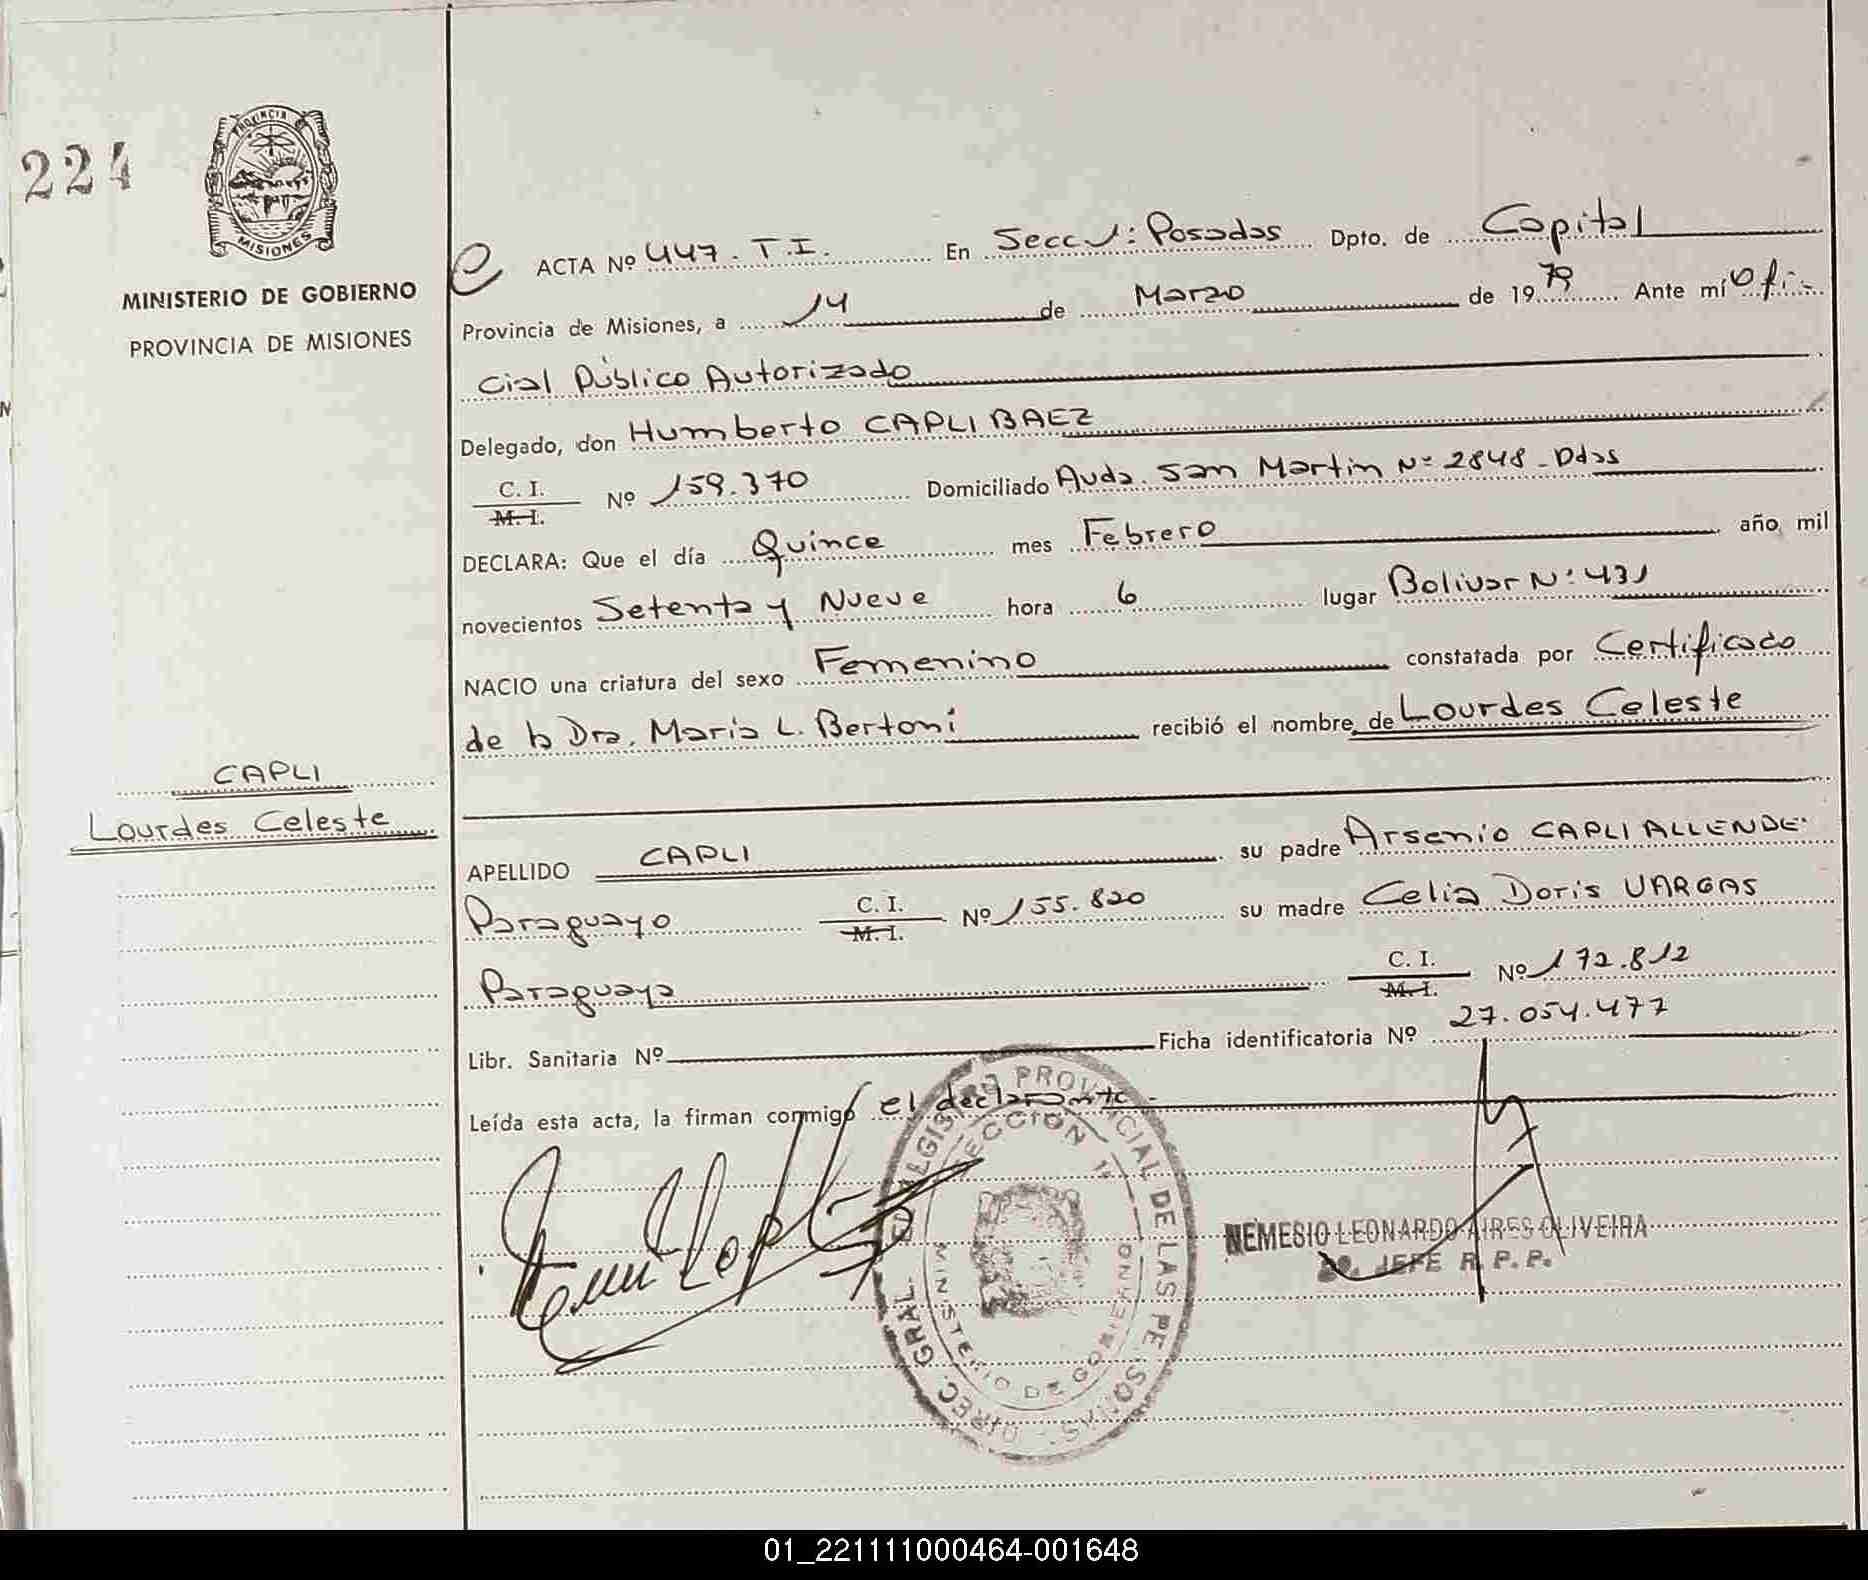 224
PROVINCIA DE
MISIONES
MINISTERIO DE GOBIERNO
PROVINCIA DE MISIONES
CAPLI
Lourdes Celeste
ACTA Nº 447. T.I. En Secc 1: Posadas Dpto. de Capital
Provincia de Misiones, a 14 de Marzo de 1979 Ante mí Ofi-
cial Público Autorizado
Delegado, don Humberto CAPLI BAEZ
C. I. M. I. Nº 159.370 Domiciliado Avda. San Martin Nº 2848 - Pdas
DECLARA: Que el día Quince mes Febrero año mil
novecientos Setenta y Nueve hora 6 lugar Bolivar Nº 431
NACIO una criatura del sexo Femenino constatada por Certificado
de la Dra. Maria L. Bertoni recibió el nombre de Lourdes Celeste
APELLIDO CAPLI su padre Arsenio CAPLI ALLENDE
Paraguayo C. I. M. I. Nº 155.820 su madre Celia Doris VARGAS
Paraguaya C. I. M. I. Nº 172.812
Libr. Sanitaria Nº Ficha identificatoria Nº 27.054.477
Leída esta acta, la firman conmigo el declarante -
DIREC. GRAL. DEL REGISTRO PROVINCIAL DE LAS PERSONAS
SECCION 1ª
MINISTERIO DE GOBIERNO
NEMESIO LEONARDO AIRES OLIVEIRA
JEFE R. P. P.
01_221111000464-001648